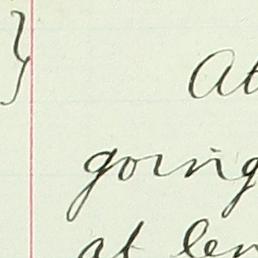 } At
going
at len